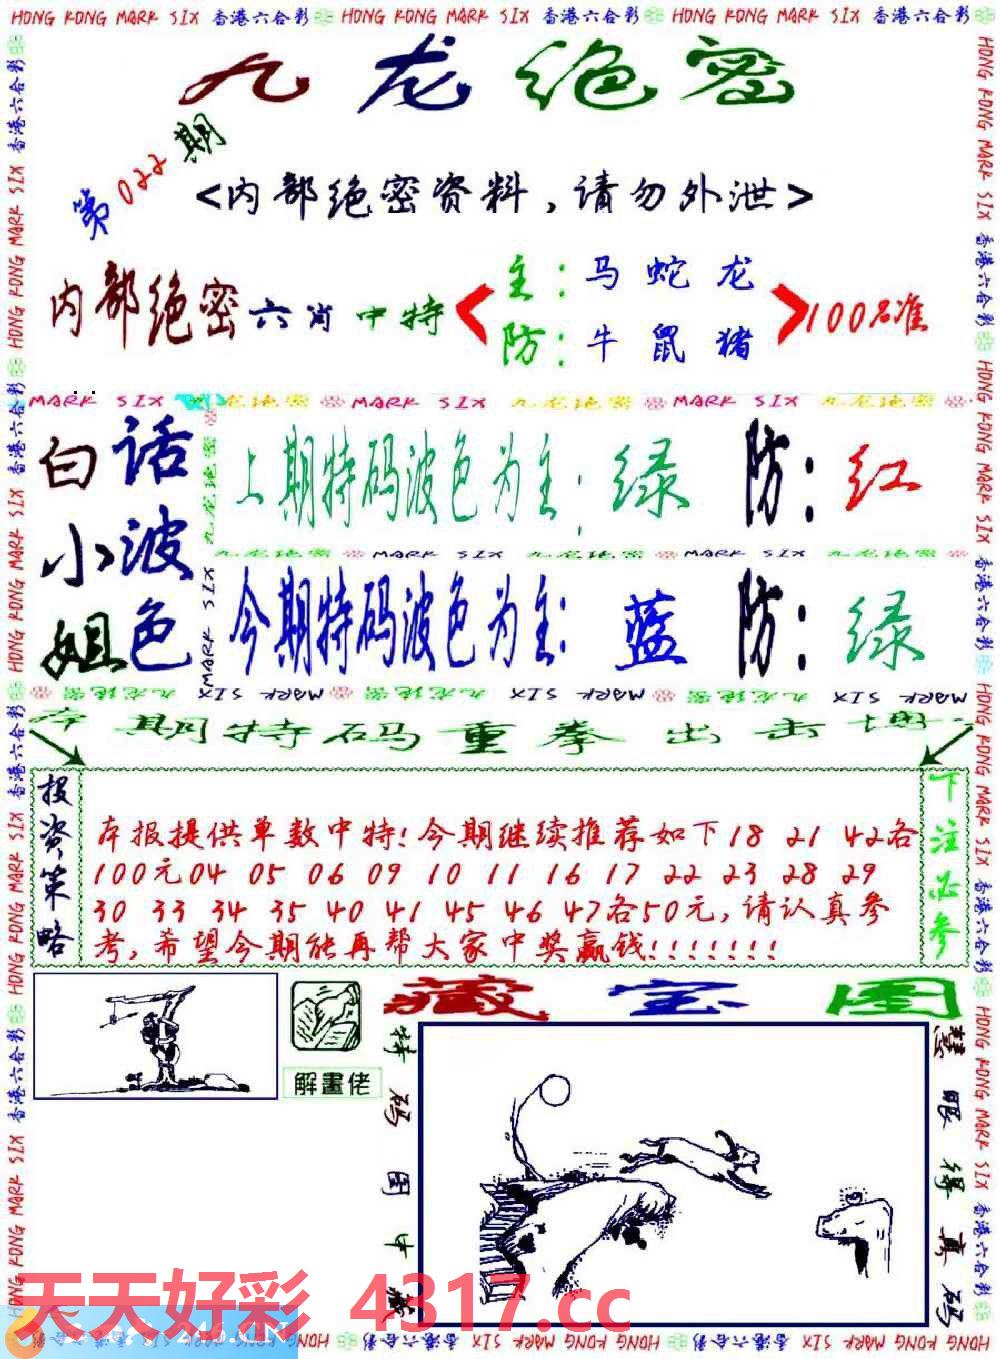 HONG KONG MARK SIX 香港六合彩 HONG KONG MARK SIX 香港六合彩 HONG KONG MARK SIX 香港六合彩
九龙绝密
第022期
<内部绝密资料,请勿外泄>
内部绝密六肖中特
主:马 蛇 龙
防:牛 鼠 猪
100%准
MARK SIX 九龙绝密 MARK SIX 九龙绝密 MARK SIX 九龙绝密
白小姐
话波色
上期特码波色为主:绿 防:红
九龙绝密 MARK SIX 九龙绝密 MARK SIX 九龙绝密
今期特码波色为主:蓝 防:绿
九龙绝密 MARK SIX 九龙绝密 MARK SIX 九龙绝密 MARK SIX
本期特码重拳出击
投资策略
本报提供单数中特!今期继续推荐如下18 21 42各
100元04 05 06 09 10 11 16 17 22 23 28 29
30 33 34 35 40 41 45 46 47各50元,请认真参
考,希望今期能再帮大家中奖赢钱!!!!!!!
下注必参
解畫佬
藏宝图
特码图中藏
慧眼得真码
天天好彩 4317.cc